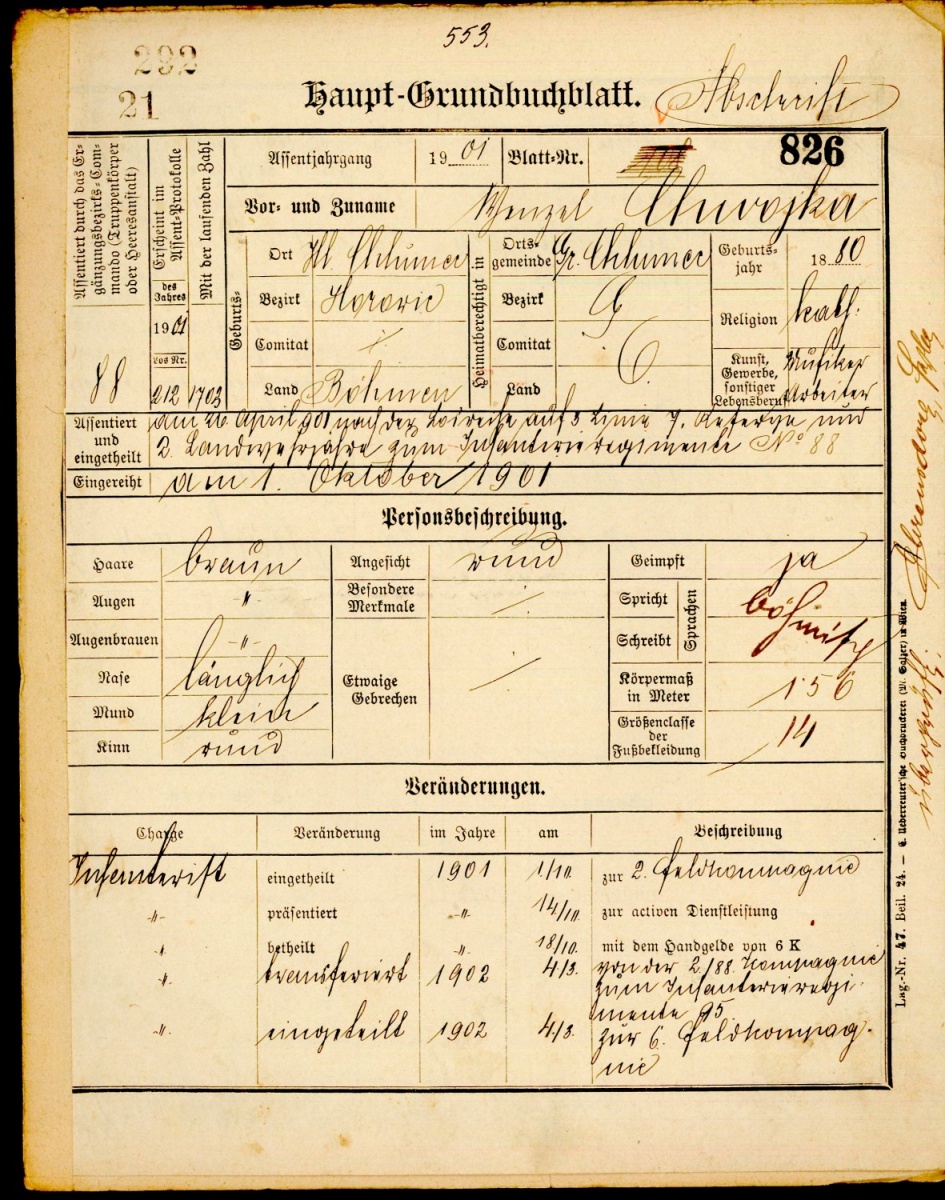 553.
292
21
Haupt-Grundbuchblatt.
Abschrift
Assentiert durch das Er-
gänzungsbezirks-Com-
mando (Truppenkörper
oder Heeresanstalt)
88
Erscheint im
Assent-Protokolle
des
Jahres
1901
Los Nr.
212
Mit der laufenden Zahl
1703
Assentjahrgang 1901 Blatt-Nr. 826
Vor- und Zuname Wenzel Chwojka
Geburts-
Ort Kl. Chlumec
Bezirk Horovic
Comitat ⁒
Land Böhmen
Heimatberechtigt in
Orts-
gemeinde Gr. Chlumec
Bezirk
Comitat
Land
Geburts-
jahr 1880
Religion kath.
Kunst,
Gewerbe,
sonstiger
Lebensberuf
Musiker
Arbeiter
Assentiert
und
eingetheilt
am 26 April 901 nach der Loireihe auf 3 Linie 7. Reserve und
2. Landwehrjahre zum Infanterieregimente No 88
Eingereiht am 1. Oktober 1901
Personsbeschreibung.
Haare braun
Augen -〃-
Augenbrauen -〃-
Nase länglich
Mund klein
Kinn rund
Angesicht rund
Besondere
Merkmale ⁒
Etwaige
Gebrechen ⁒
Geimpft ja
Spricht
Schreibt
Sprachen
böhmisch
Körpermaß
in Meter 1·56
Größenclasse
der
Fußbekleidung 14
Veränderungen.
Charge Veränderung im Jahre am Beschreibung
Infanterist eingetheilt 1901 1/10 zur 2. Feldkompagnie
-〃- präsentiert -〃- 14/10 zur activen Dienstleistung
〃. betheilt -〃- 18/10. mit dem Handgelde von 6 K
〃. transferiert 1902 4/3. von der 2/88. Kompagnie
zum Infanterieregi-
mente 95.
〃. eingeteilt 1902 4/3. zur 6. Feldkompag-
nie
Lag.-Nr. 47. Beil. 24. — C. Ueberreuter'sche Buchdruckerei (M. Salzer) in Wien.
überprüft: